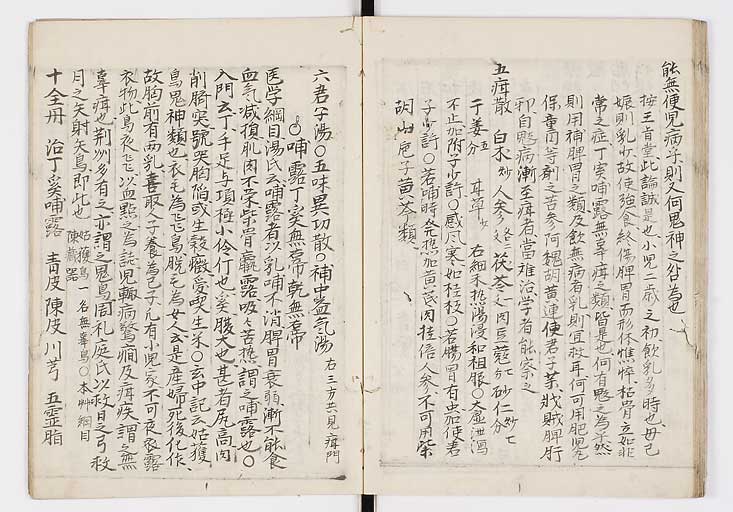 能無便児病予則又何鬼神之咎為也
按王首堂此論誠是也小児二歳之初飲乳多時也母已
娠則乳少故使強食終傷脾胃而形体憔悴枯骨立如非
常之症丁奚哺露無辜疳之類皆是也何有鬼之為乎然
則用補脾胃之類及飲無病者乳則宜救耳何可用肥児丸
保童円等剤之苦参阿魏胡黄連使君子葉戕賊脾肝
邪自鬼病漸至疳者當难治学者能察之
五疳散 白朮炒 人参 茯苓 肉豆蔲 砂仁炒
干姜 甘草 右細末熱湯浸和祖服○大益泄瀉
不止加附子少許○感风寒加桂枝○若腸胃有虫加使君
子少許○若哺時発熱加黄芪肉桂倍人参不可用柴
胡山梔子黄芩類
六君子湯○五味異功散○補中益気湯 右三方共見疳門
○哺露丁奚無辜疳乾無辜疳
医学綱目湯氏云哺露者以乳哺不消脾胃衰弱漸不能食
血気減損肌肉不栄柴骨羸露吸々苦熱謂之哺露也○
入門云丁手足与項極小伶仃也奚腹大也甚者尻高肉
削臍突號哭胸陥或生穀癥愛喫生米○玄中記云姑獲
鳥鬼神類也衣毛為飛鳥脱毛為女人云是産婦死後化作
故胸前有两乳喜取人子養為己子凢有小児家不可夜衣露
衣物此鳥夜飞以血點之為誌児輙病驚癎及疳疾謂之無
辜疳也荆洲多有之亦謂之鬼鳥周礼庭氏以救日之弓救
月之矢射夭鳥即此也 姑獲鳥一名無辜鳥○本艸綱目 陳蔵器
十全丹 治丁奚哺露 青皮 陳皮 川芎 五靈脂